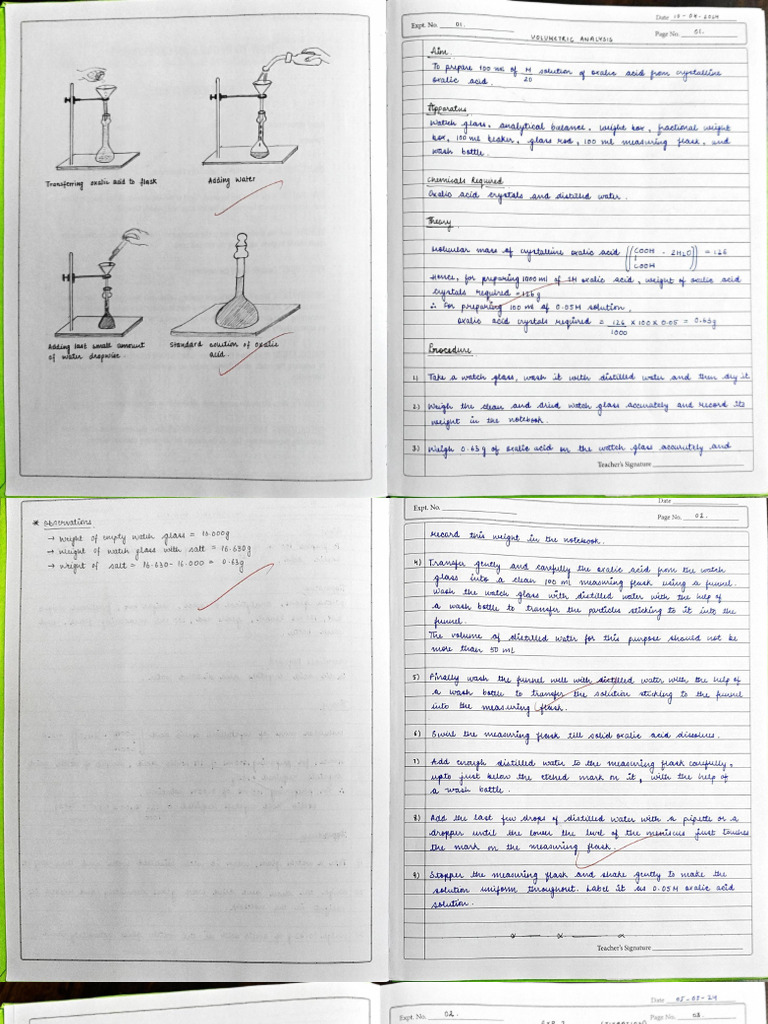 Transferring oxalic acid to flask
Adding Water
Adding last small amount
of water dropwise.
Standard solution of oxalic
acid.
Date
Expt. No. 01.
Page No. 01.
VOLUMETRIC ANALYSIS
Aim
To prepare 100 ml of M/20 solution of oxalic acid from crystalline
oxalic acid.
Apparatus
Watch glass, analytical balance, weight box, fractional weight
box, 100 ml beaker, glass rod, 100 ml measuring flask, and
wash bottle.
Chemicals Required
Oxalic acid crystals and distilled water.
Theory
Molecular mass of crystalline oxalic acid ((COOH - 2H₂O)) = 126
COOH
Hence, for preparing 1000 ml of 1M oxalic acid, weight of oxalic acid
crystals required = 126 g
∴ For preparing 100 ml of 0.05M solution,
oxalic acid crystals required = 126/1000 × 100 × 0.05 = 0.63g
Procedure
1) Take a watch glass, wash it with distilled water and then dry it
2) Weigh the clean and dried watch glass accurately and record its
weight in the notebook.
3) Weigh 0.63 g of oxalic acid on the watch glass accurately and
Teacher's Signature
* Observations
→ Weight of empty watch glass = 16.000g
→ Weight of watch glass with salt = 16.630g
→ Weight of salt = 16.630 - 16.000 = 0.63g
Date
Expt. No.
Page No. 02.
record this weight in the notebook.
4) Transfer gently and carefully the oxalic acid from the watch
glass into a clean 100 ml measuring flask using a funnel.
Wash the watch glass with distilled water with the help of
a wash bottle to transfer the particles sticking to it into the
funnel.
The volume of distilled water for this purpose should not be
more than 50 mL
5) Finally wash the funnel well with distilled water with the help of
a wash bottle to transfer the solution sticking to the funnel
into the measuring flask.
6) Swirl the measuring flask till solid oxalic acid dissolves.
7) Add enough distilled water to the measuring flask carefully,
upto just below the etched mark on it, with the help of
a wash bottle.
8) Add the last few drops of distilled water with a pipette or a
dropper until the lower the level of the meniscus just touches
the mark on the measuring flask.
9) Stopper the measuring flask and shake gently to make the
solution uniform throughout. Label it as 0.05M oxalic acid
solution.
Teacher's Signature
Date 05-03-24
Expt. No. 02.
Page No. 03.